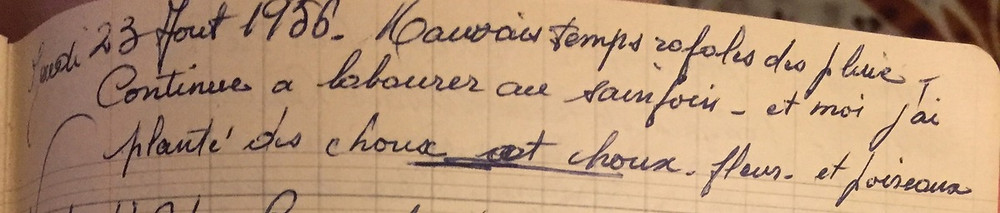 Jeudi 23 Aout 1956. Mauvais temps rafales des pluie -
Continue a labourer au sainfoin - et moi j'ai
planté des choux et choux-fleur- et poireaux